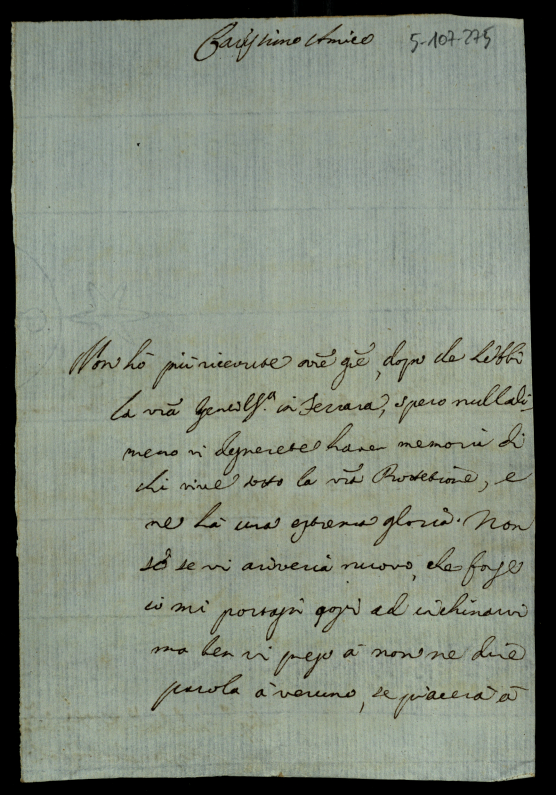 Carissimo Amico
5-107-275
Non hò più ricevute vrē grē, dopo che hebbi
la vrā Gentilss.ª in Ferrara, spero nulladi-
meno vi degnerete haver memoria di
chi vive sotto la vrā Protetione, e
ne hà una estrema gloria. Non
sò se vi ariverà nuovo, che forse
io mi portassi costì ad inchinarvi
ma ben vi prego à non ne dire
parola à veruno, se piacerà à